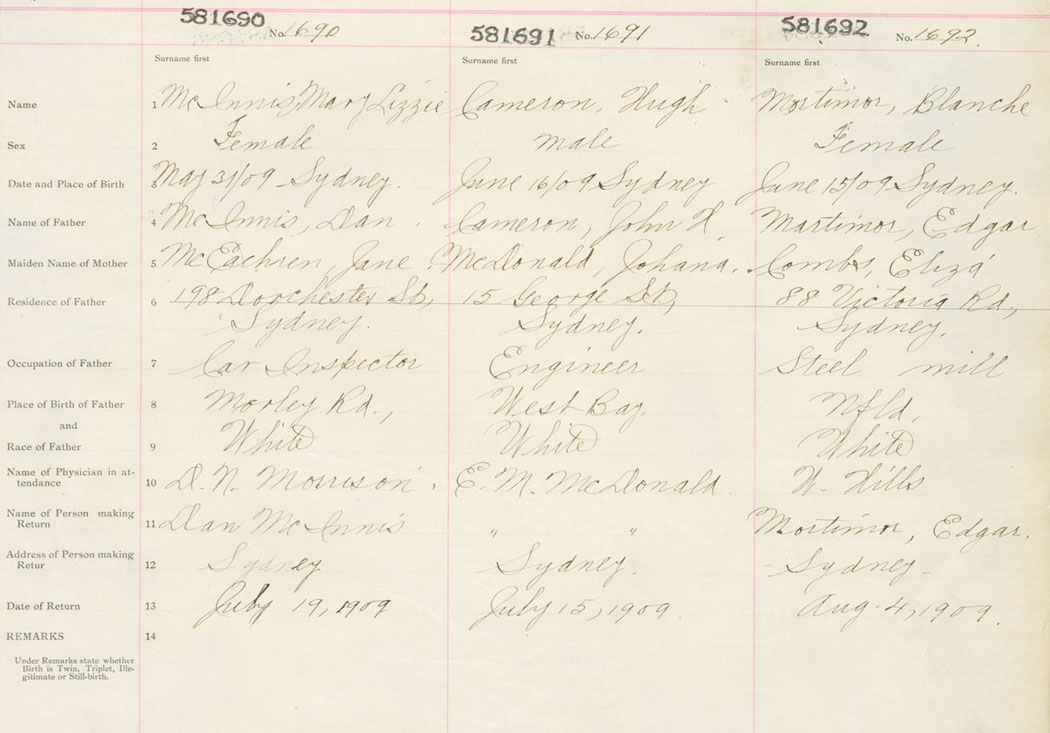 581690 No. 1690 581691 No. 1691 581692 No. 1692.
Surname first Surname first Surname first
Name 1 McInnis, Mary Lizzie Cameron, Hugh Mortimor, Blanche
Sex 2 Female male Female
Date and Place of Birth 3 May 31/09 Sydney. June 16/09 Sydney June 15/09 Sydney.
Name of Father 4 McInnis, Dan. Cameron, John H. Martimor, Edgar
Maiden Name of Mother 5 McEachren, Jane. McDonald, Johana. Combs, Eliza
Residence of Father 6 198 Dorchester St., 15 George St., 88 Victoria Rd.,
Sydney. Sydney. Sydney.
Occupation of Father 7 Car Inspector Engineer Steel mill
Place of Birth of Father 8 Morley Rd., West Bay. Nfld,
and
Race of Father 9 White White White
Name of Physician in at-
tendance 10 D. N. Morrison. E. M. McDonald W. Hills
Name of Person making
Return 11 Dan McInnis " " Mortimor, Edgar.
Address of Person making
Retur 12 Sydney Sydney Sydney
Date of Return 13 July 19, 1909 July 15, 1909 Aug. 4, 1909.
REMARKS 14
Under Remarks state whether
Birth is Twin, Triplet, Ille-
gitimate or Still-birth.